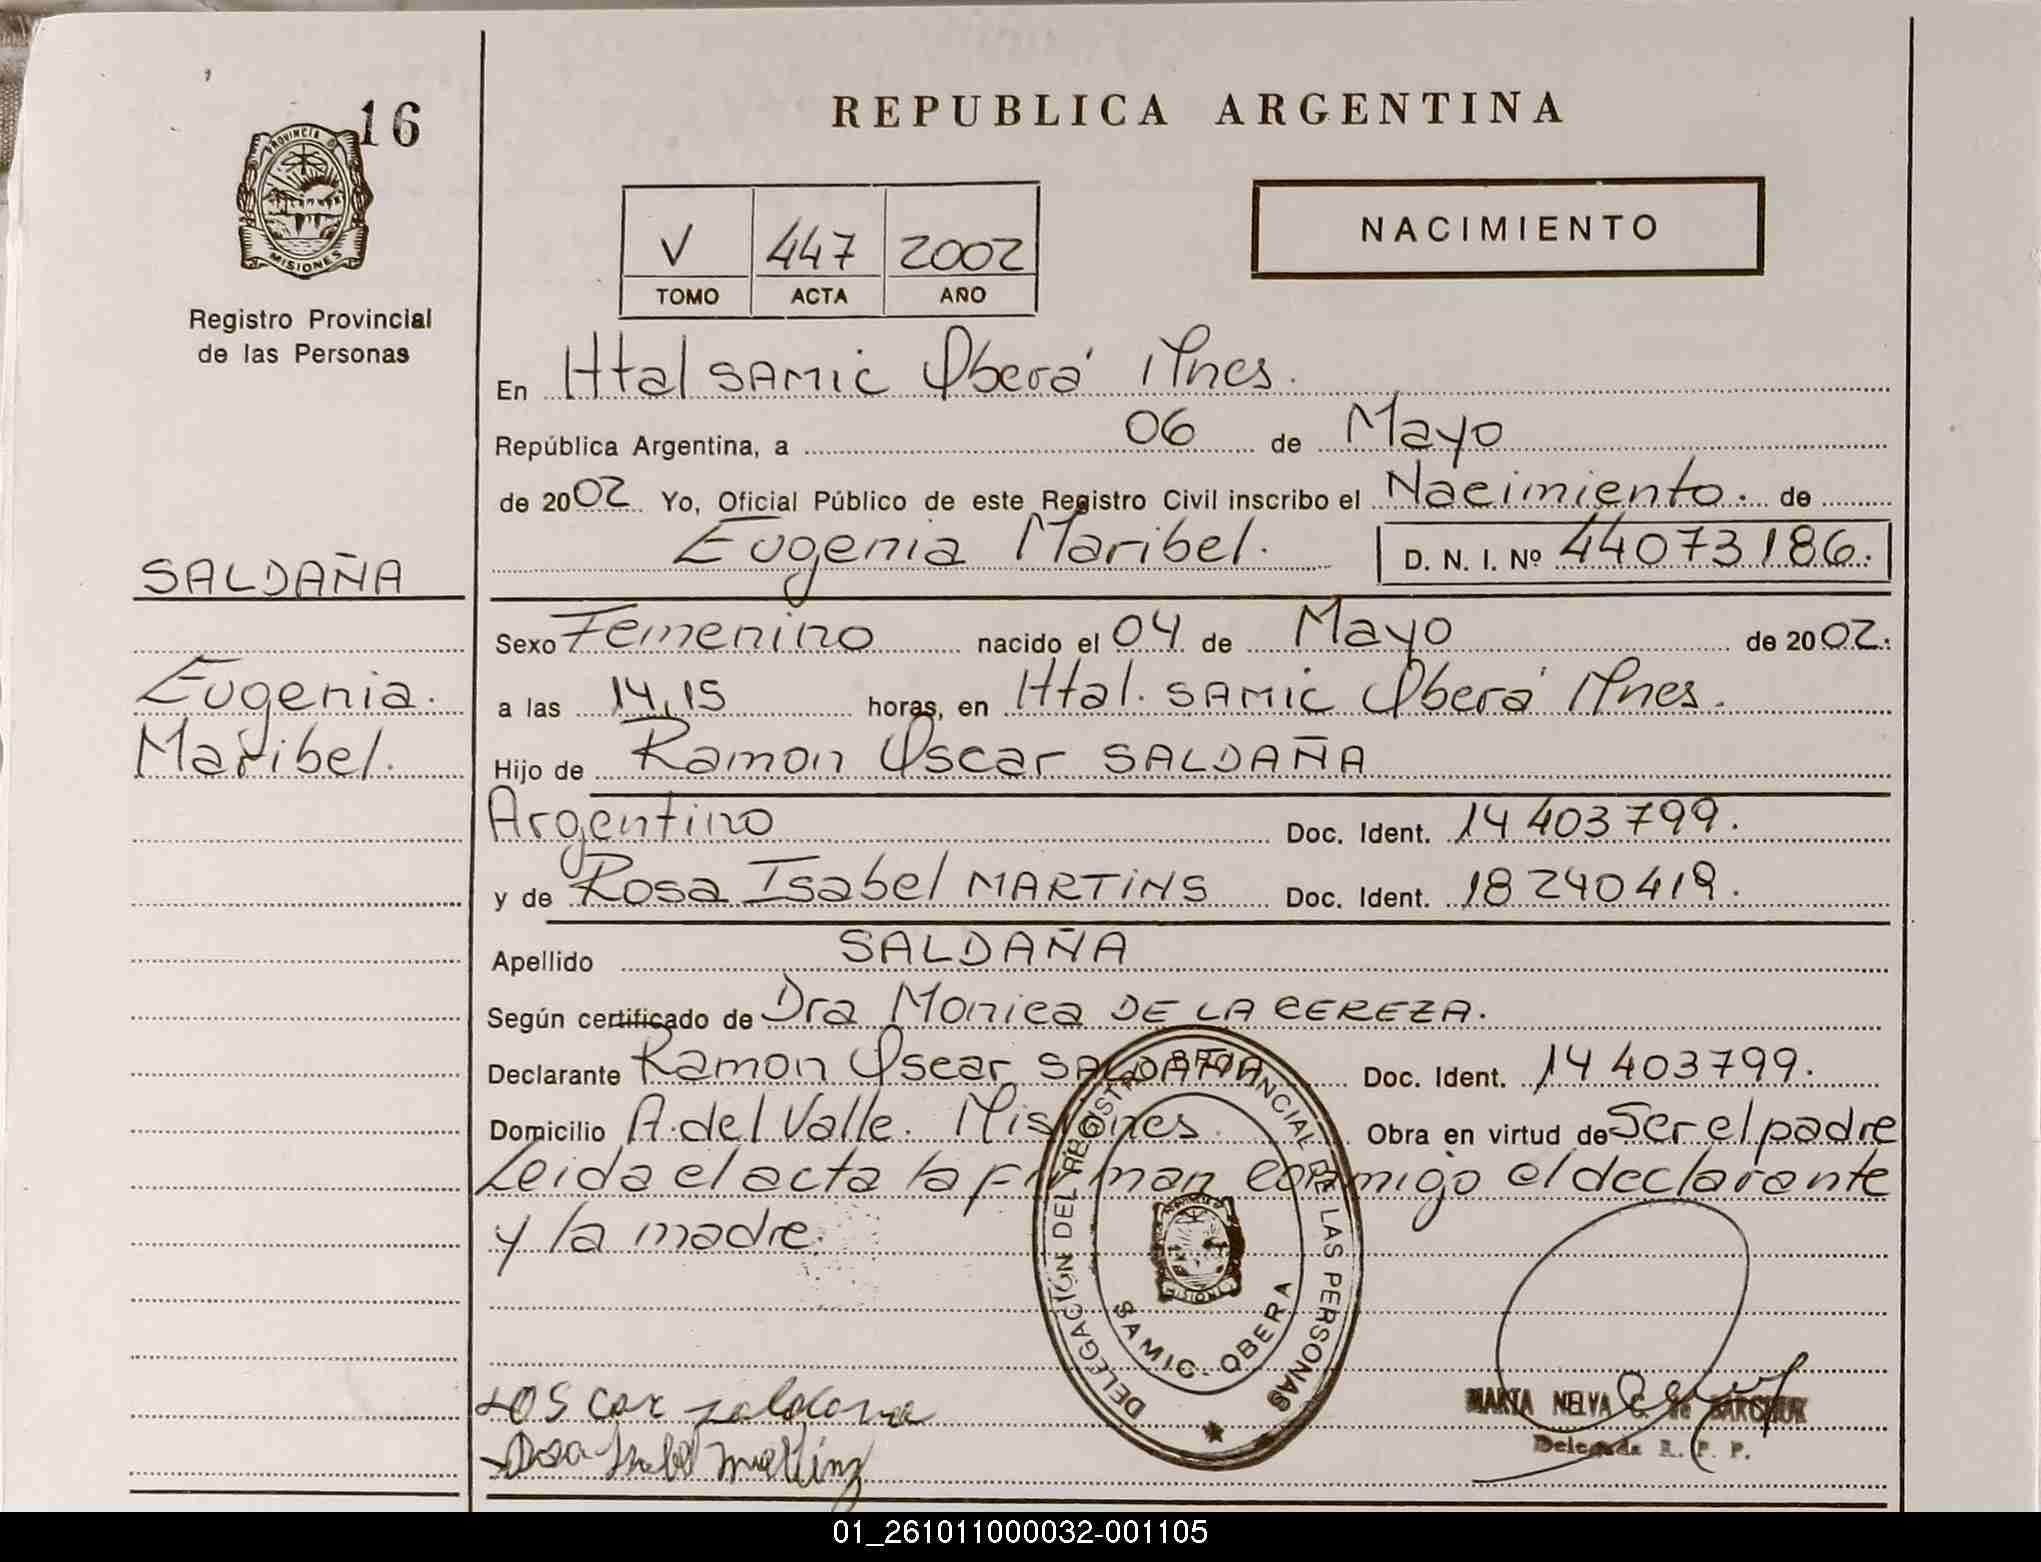 16
PROVINCIA DE
MISIONES
Registro Provincial
de las Personas
REPUBLICA ARGENTINA
V 447 2002
TOMO ACTA AÑO
NACIMIENTO
En Htal SAMIC Oberá Mnes.
República Argentina, a 06 de Mayo
de 2002 Yo, Oficial Público de este Registro Civil inscribo el Nacimiento. de
Eugenia Maribel. D. N. I. Nº 44073186.
SALDAÑA
Eugenia.
Maribel.
Sexo Femenino nacido el 04 de Mayo de 2002.
a las 14,15 horas, en Htal. SAMIC Oberá Mnes.
Hijo de Ramon Oscar SALDAÑA
Argentino Doc. Ident. 14 403799.
y de Rosa Isabel MARTINS Doc. Ident. 18240419.
Apellido SALDAÑA
Según certificado de Dra Monica DE LA CEREZA.
Declarante Ramon Oscar SALDAÑA Doc. Ident. 14 403799.
Domicilio A. del Valle. Misiones. Obra en virtud de Ser el padre
Leida el acta la firman conmigo el declarante
y la madre.
DELEGACIÓN DEL REGISTRO PROVINCIAL DE LAS PERSONAS
SAMIC - OBERA
MISIONES
Oscar
MARTA NELVA C. de
Delegada R. P. P.
01_261011000032-001105